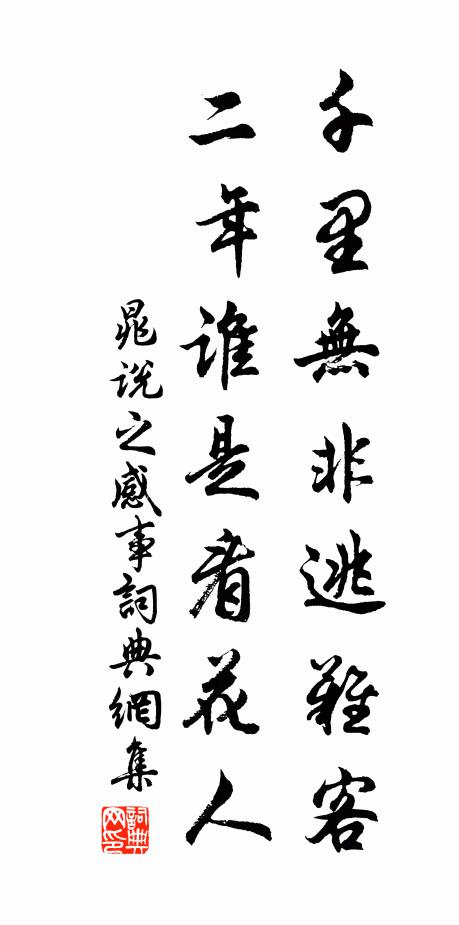 千里無非逃難客
二年誰是看花人
晁說之感事詞典網集
詞典網印